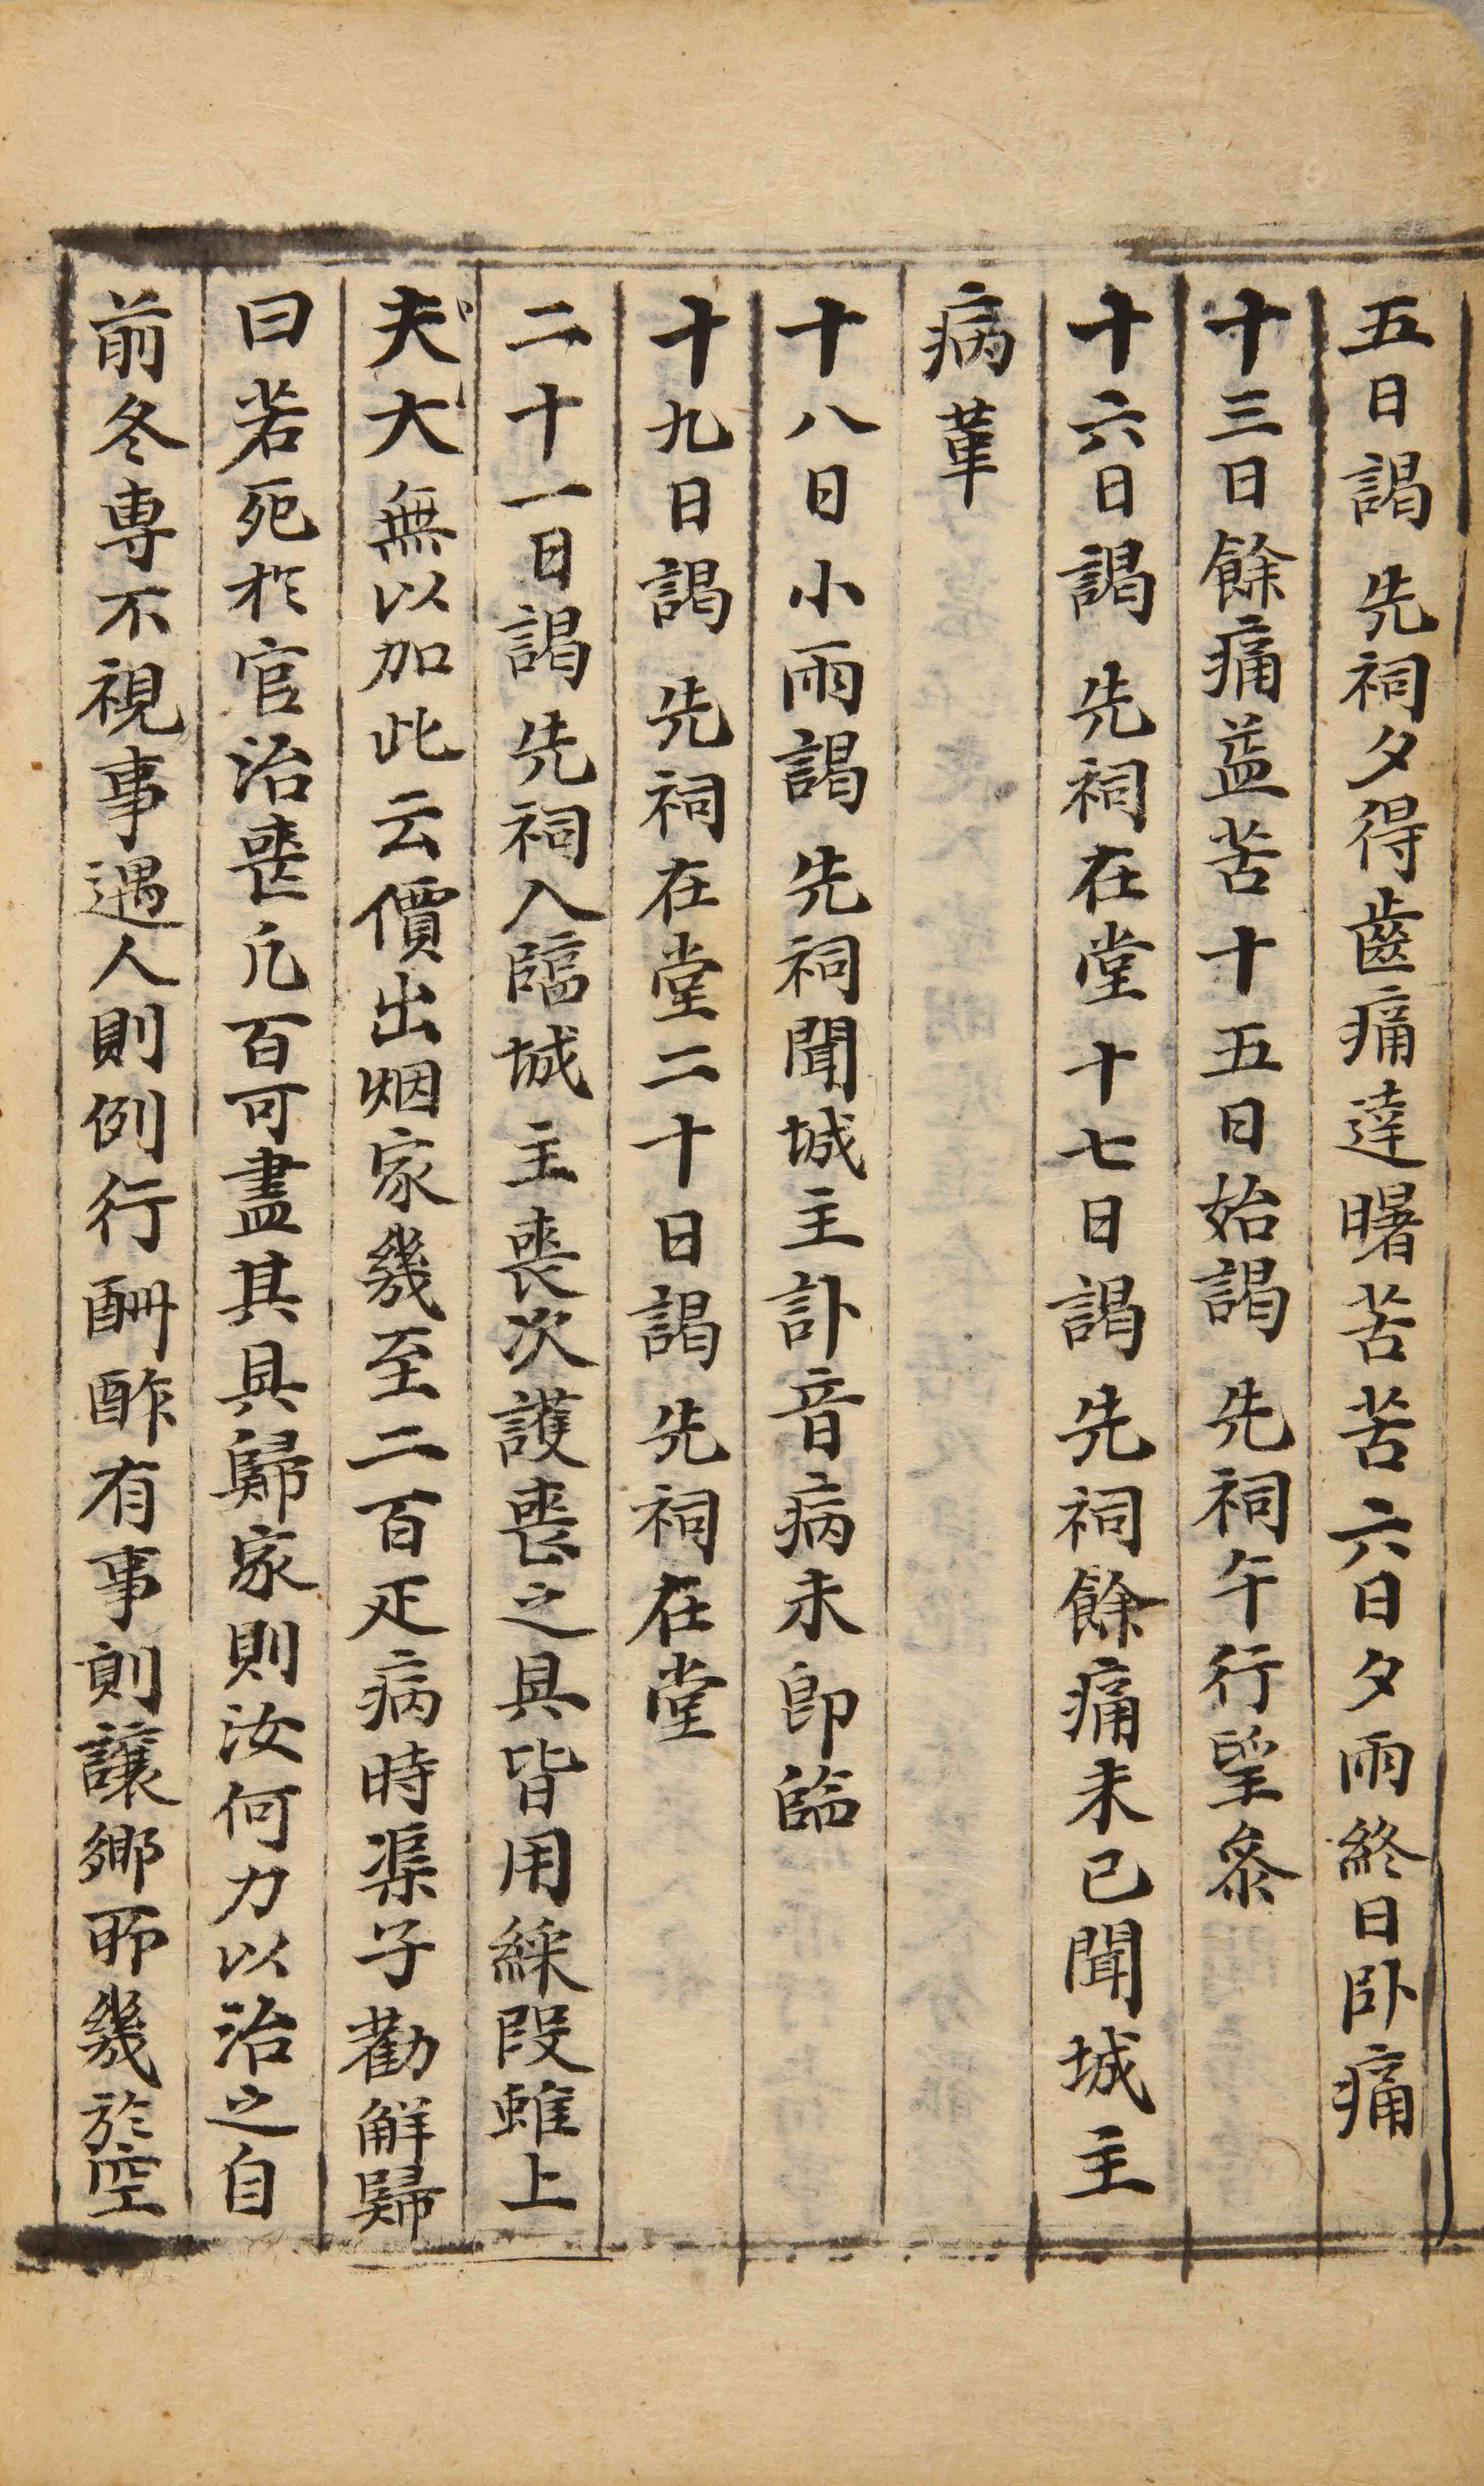 五日謁 先祠夕得齒痛達曙苦苦六日夕雨終日卧痛
十三日餘痛益苦十五日始謁 先祠午行望叅
十六日謁 先祠在堂十七日謁 先祠餘痛未已聞城主
病革
十八日小雨謁 先祠聞城主訃音病未卽臨
十九日謁 先祠在堂二十日謁 先祠在堂
二十一日謁 先祠入臨城主喪次護喪之具皆用綵段雖上
夫大無以加此云價出烟家幾至二百疋病時渠子勸觧歸
曰若死於官治喪凡百可盡其具歸家則汝何力以治之自
前冬専不視事遇人則例行酬酢有事則讓鄉所幾於空